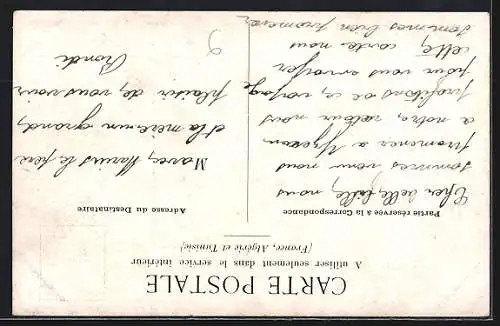 CARTE POSTALE
A utiliser seulement dans le service intérieur
(France, Algérie et Tunisie)
Partie réservée à la Correspondance
Adresse du Destinataire
Cher belle fille, nous
sommes venu nous
promener a
a notre, retour nous
profitons de ce, voyage
pour vous envoyer
cette, carte nous
sommes bien
Marce, Marius le père
et la mere un grand,
plaisir de, vous voir
9